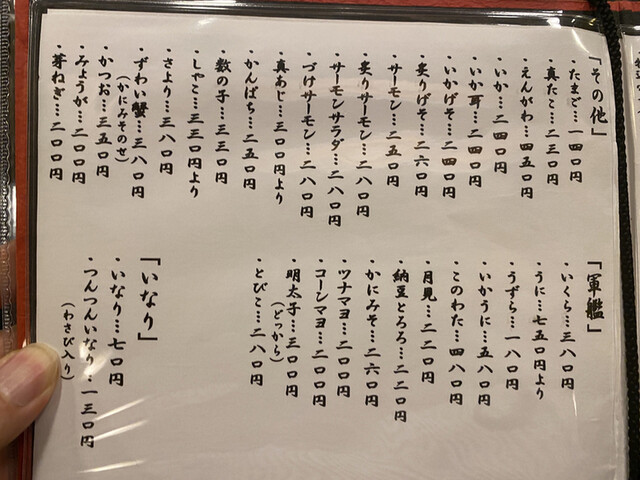 「その他」
・たまご…一四〇円
・真たこ…二三〇円
・えんがわ…四五〇円
・いか…二四〇円
・いか耳…二四〇円
・いかげそ…二四〇円
・炙りげそ…二六〇円
・サーモン…二五〇円
・炙りサーモン…二八〇円
・サーモンサラダ…二八〇円
・づけサーモン…二八〇円
・真あじ…三〇〇円より
・かんぱち…二五〇円
・数の子…三三〇円
・しゃこ…三三〇円より
・さより…三八〇円
・ずわい蟹…三八〇円
（かにみそのせ）
・かつお…三五〇円
・みょうが…二〇〇円
・芽ねぎ…二〇〇円
「軍艦」
・いくら…三八〇円
・うに…七五〇円より
・うずら…一八〇円
・いかうに…五八〇円
・このわた…四八〇円
・月見…二二〇円
・納豆とろろ…二二〇円
・かにみそ…二六〇円
・ツナマヨ…二〇〇円
・コーンマヨ…二〇〇円
・明太子…三〇〇円
（どっから）
・とびこ…二八〇円
「いなり」
・いなり…七〇円
・つんつんいなり…一三〇円
（わさび入り）